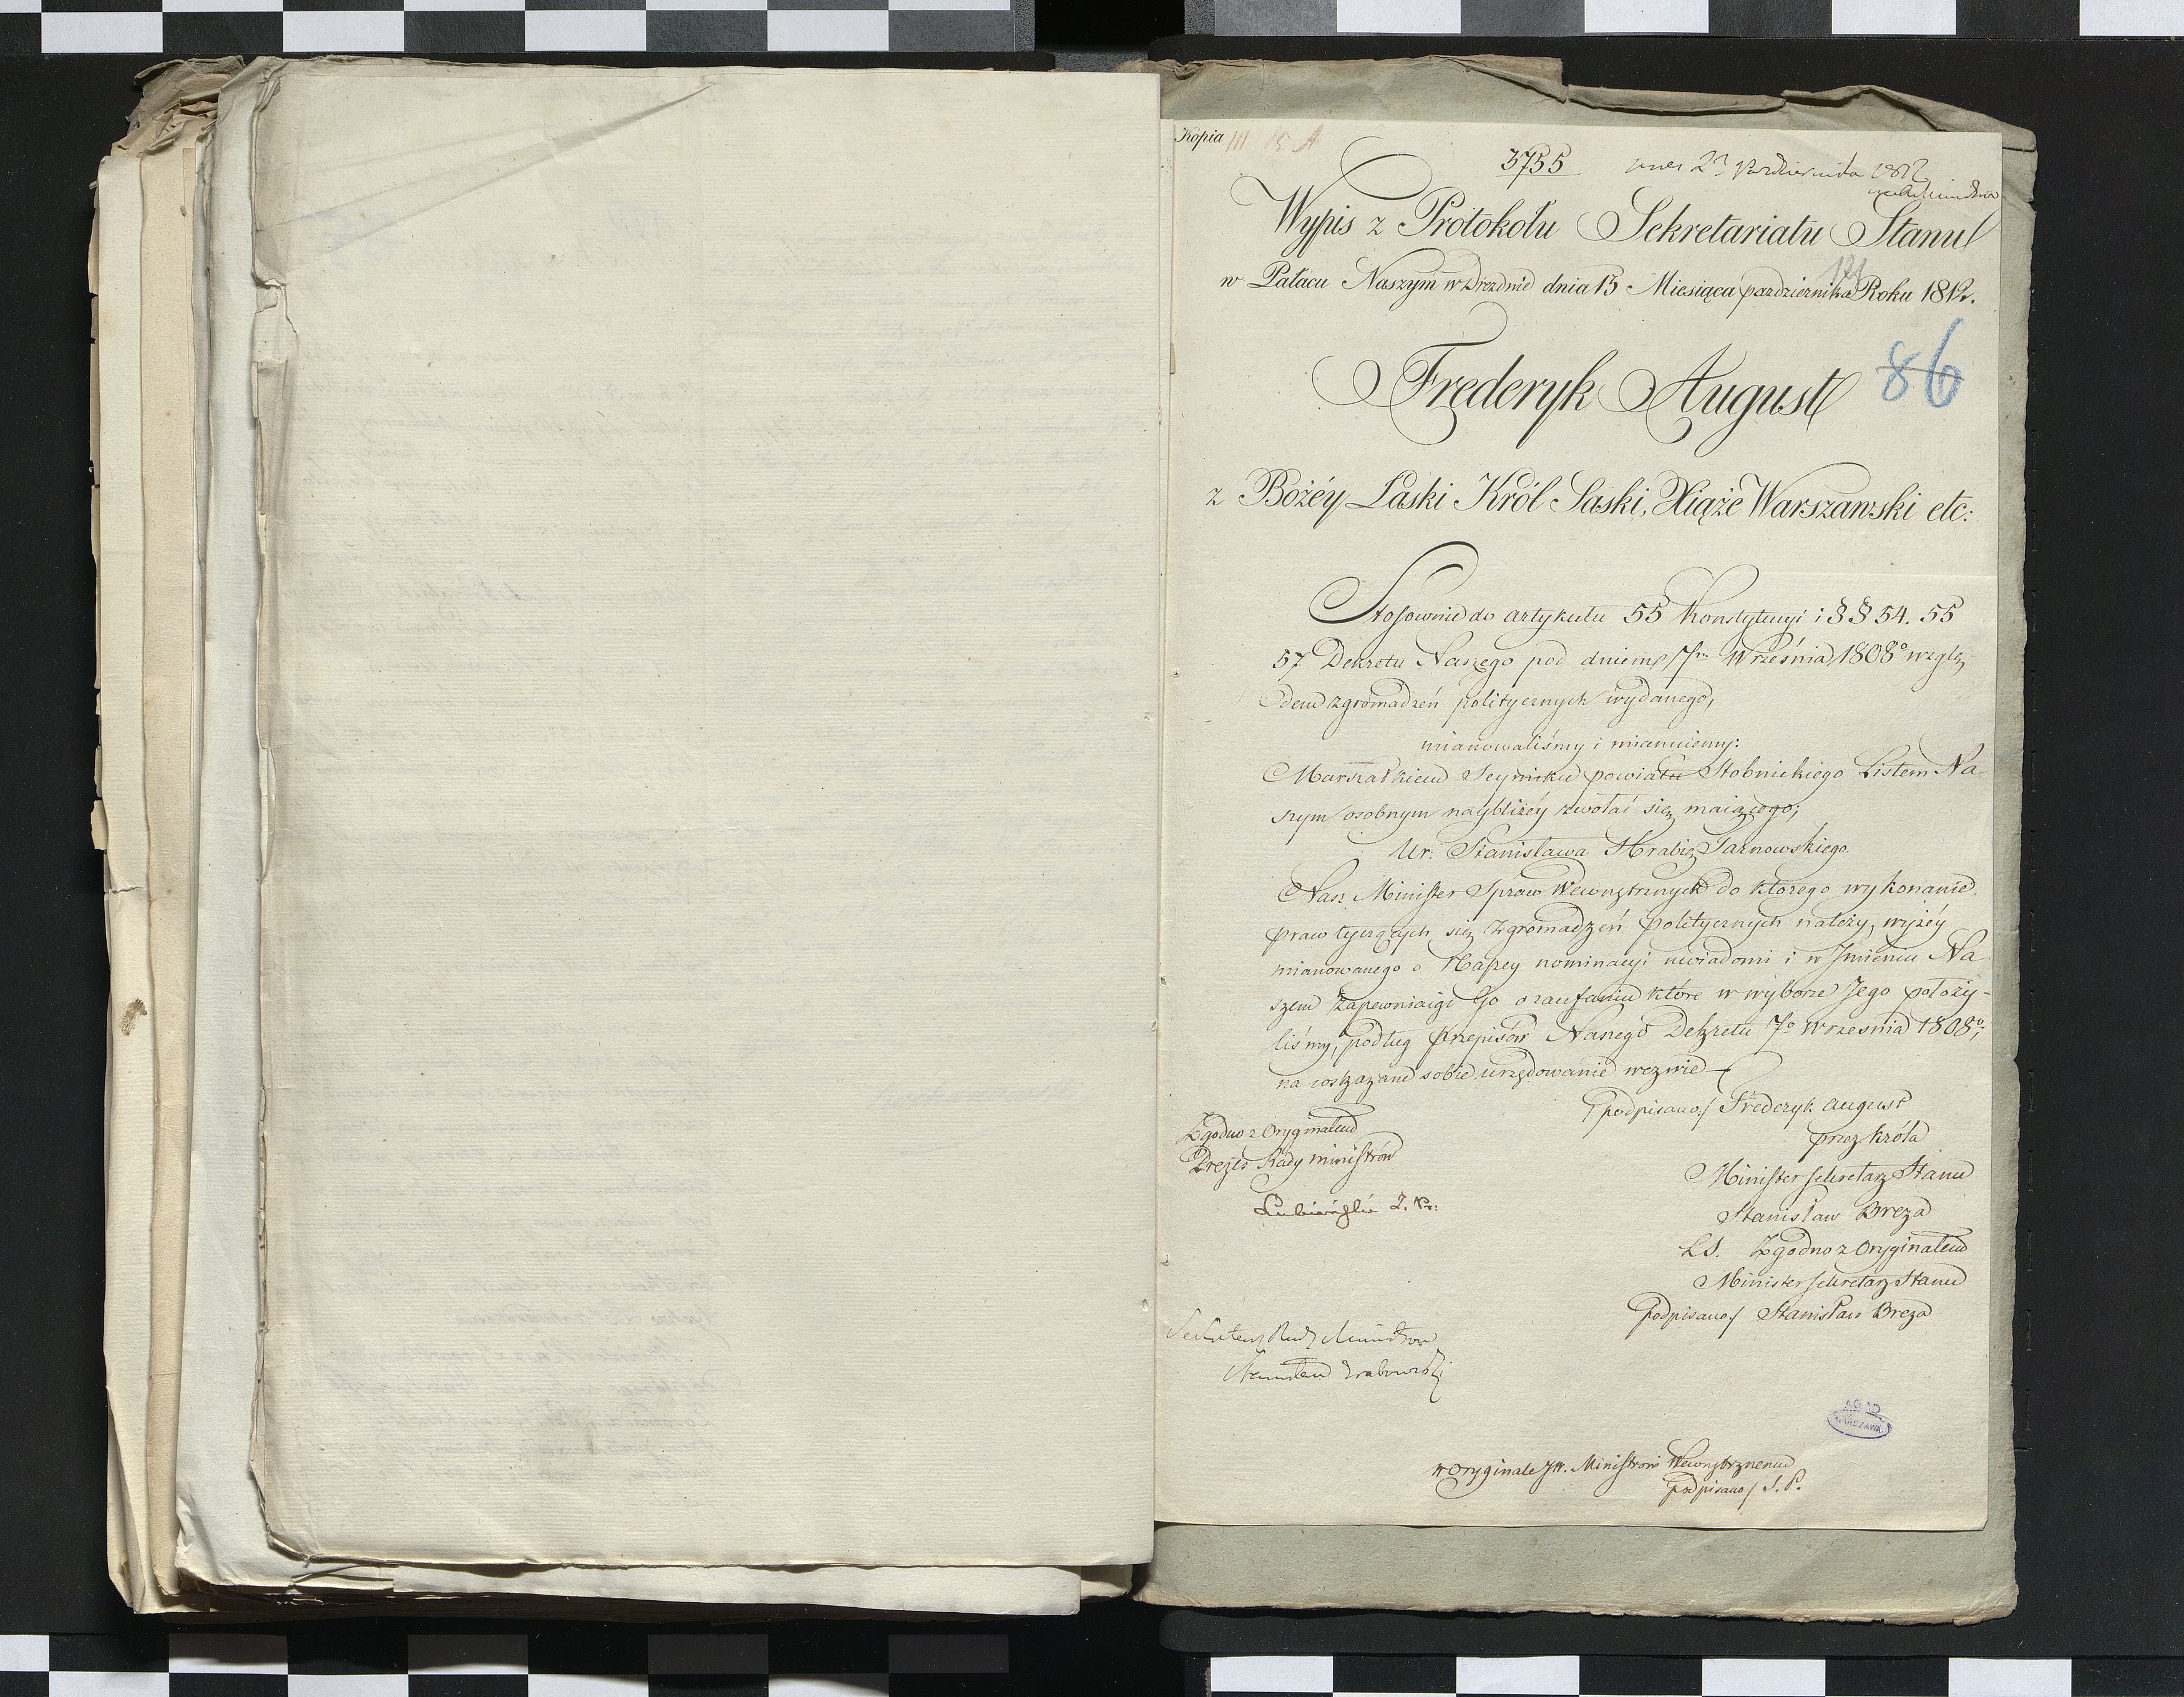 Kopia III 15 A
3755 wnes 23 Października 1812
Wypis z Protokołu Sekretariatu Stanu
w Pałacu Naszym w Dreznie dnia 13 Miesiąca października Roku 1812.
Frederyk August
86
z Bożéy Łaski Król Saski, Xiąże Warszawski etc:
Stosownie do artykułu 55 Konstytucyi i §§ 54. 55
57 Dekretu Naszego pod dniem 7m Września 1808o wzglę-
dem zgromadzeń politycznych wydanego,
mianowaliśmy i mianuiemy:
Marszałkiem Seymiku powiatu Stobnickiego Listem Na
szym osobnym naybliżéy zwołać się maiącego;
Ur. Stanisława Hrabię Tarnowskiego.
Nasz Minister Spraw Wewnętrznych do którego wykonanie
praw tyczących się zgromadzeń politycznych należy, wyżéy
mianowanego o Naszey nominacyi uwiadomi i w Jmieniu Na
szem zapewniaiąc Go o zaufaniu które w wyborze Jego położy-
liśmy, podług przepisów Naszego Dekretu 7o Września 1808o;
na wskazane sobie urzędowanie wezwie
podpisano/ Frederyk August
przez Króla
Minister Sekretarz Stanu
Stanisław Breza
LS. Zgodno z Oryginałem
Minister Sekretarz Stanu
podpisano/ Stanisław Breza
Zgodno z Oryginałem
Prezes Rady Ministrów
Sekretarz Rady Ministrów
Stanisław Grabowski
AGAD
WARSZAWA
w Oryginale JW. Ministrowi Wewnętrznemu
podpisano/ S. P.